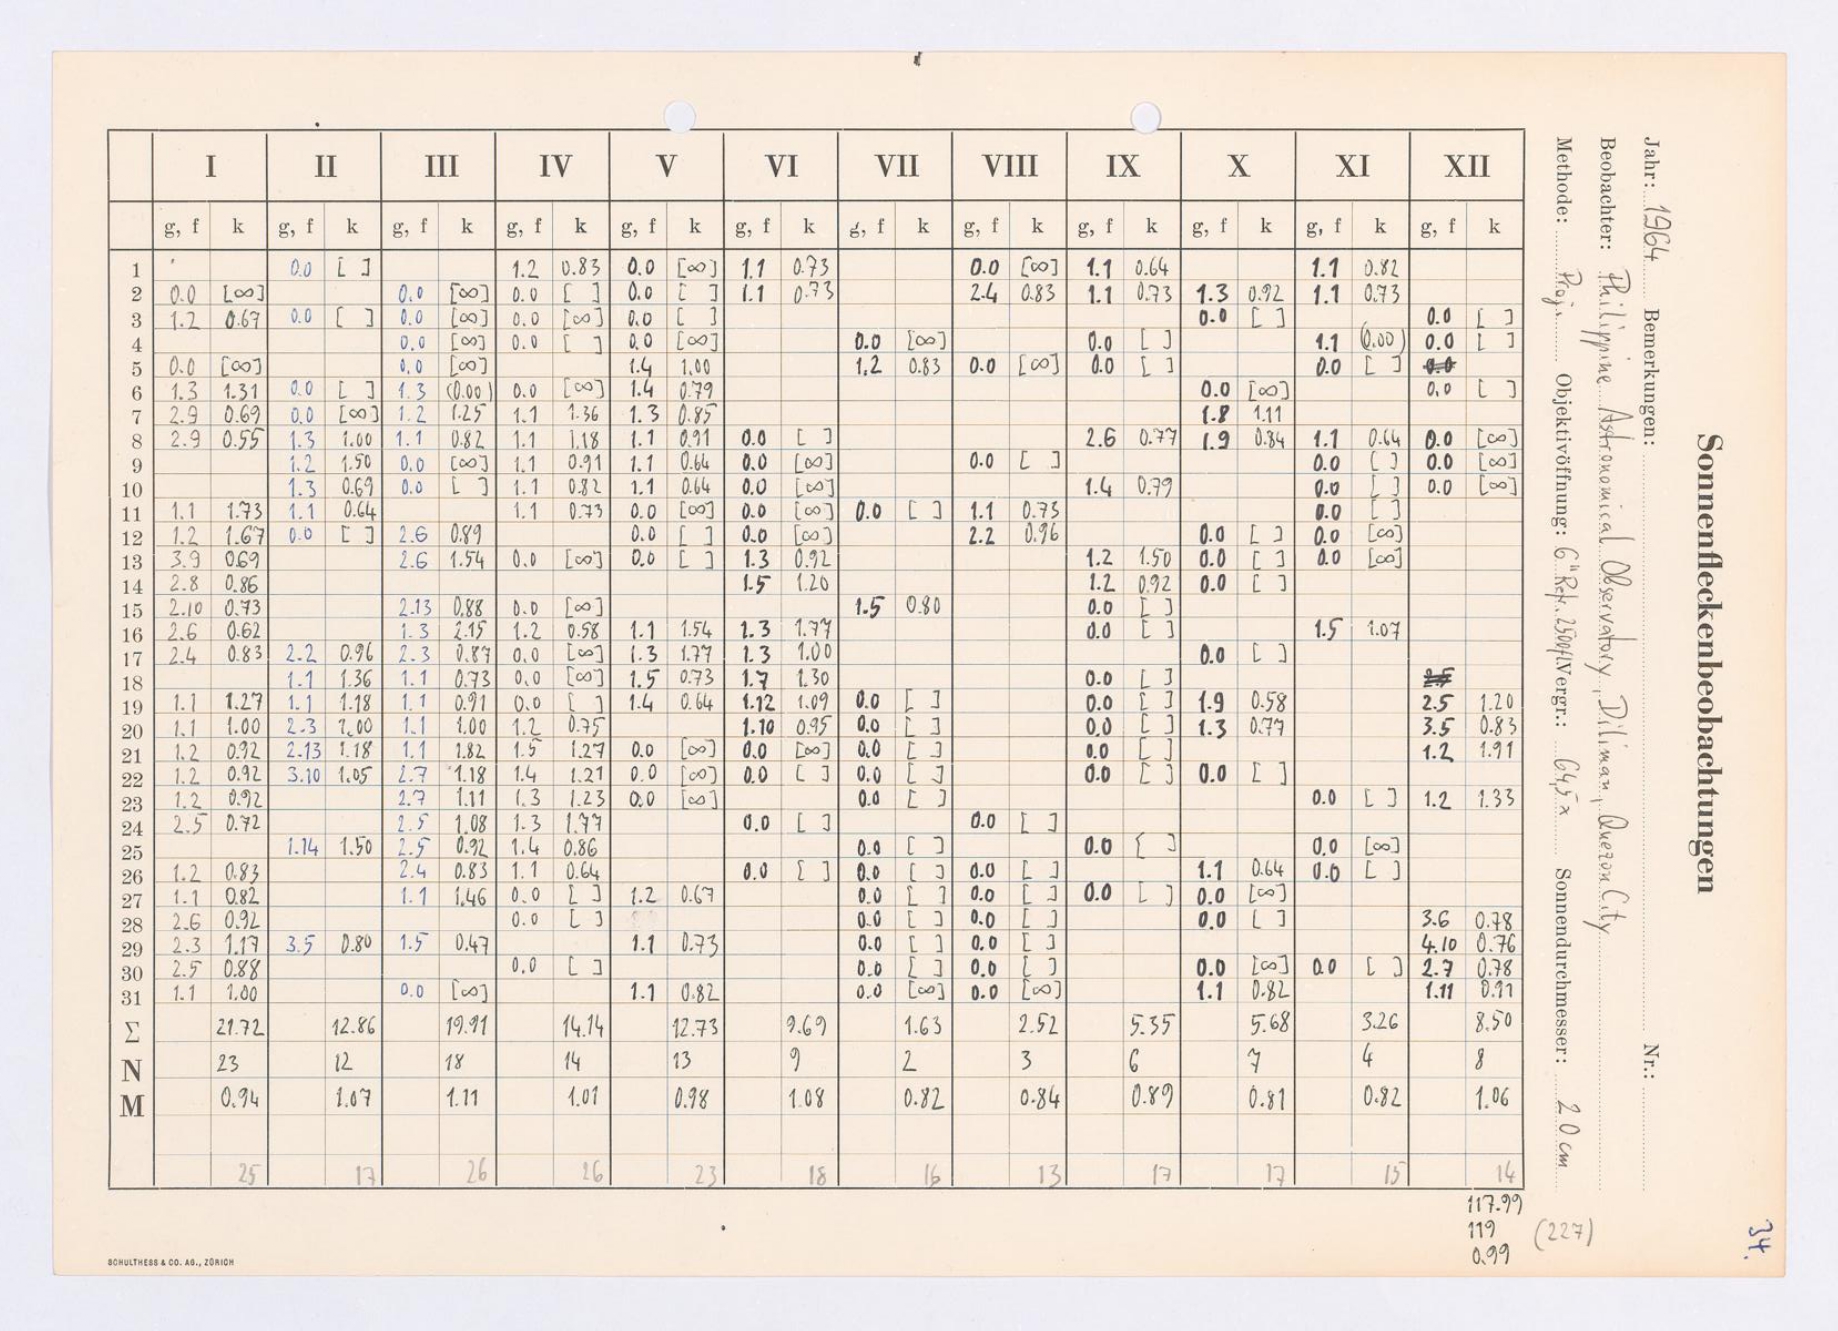 Sonnenfleckenbeobachtungen
Jahr: 1964 Bemerkungen: Nr.:
Beobachter: Philippine Astronomical Observatory, Diliman, Quezon City
Methode: Proj. Objektivöffnung: 6" Refr. Vergr.: 64,5 x Sonnendurchmesser: 20 cm
I II III IV V VI VII VIII IX X XI XII
g, f k g, f k g, f k g, f k g, f k g, f k g, f k g, f k g, f k g, f k g, f k g, f k
1 0.0 [ ] 1.2 0.83 0.0 [∞] 1.1 0.73 0.0 [∞] 1.1 0.64 1.1 0.82
2 0.0 [∞] 0.0 [∞] 0.0 [ ] 0.0 [ ] 1.1 0.73 2.4 0.83 1.1 0.73 1.3 0.92 1.1 0.73
3 1.2 0.67 0.0 [ ] 0.0 [∞] 0.0 [∞] 0.0 [ ] 0.0 [ ] 0.0 [ ]
4 0.0 [∞] 0.0 [ ] 0.0 [∞] 0.0 [∞] 0.0 [ ] 1.1 (0.00) 0.0 [ ]
5 0.0 [∞] 0.0 [∞] 1.4 1.00 1.2 0.83 0.0 [∞] 0.0 [ ] 0.0 [ ] 0.0
6 1.3 1.31 0.0 [ ] 1.3 (0.00) 0.0 [∞] 1.4 0.79 0.0 [∞] 0.0 [ ]
7 2.9 0.69 0.0 [∞] 1.2 1.25 1.1 1.36 1.3 0.85 1.8 1.11
8 2.9 0.55 1.3 1.00 1.1 0.82 1.1 1.18 1.1 0.91 0.0 [ ] 2.6 0.77 1.9 0.84 1.1 0.64 0.0 [∞]
9 1.2 1.50 0.0 [∞] 1.1 0.91 1.1 0.64 0.0 [∞] 0.0 [ ] 0.0 [ ] 0.0 [∞]
10 1.3 0.69 0.0 [ ] 1.1 0.82 1.1 0.64 0.0 [∞] 1.4 0.79 0.0 [ ] 0.0 [∞]
11 1.1 1.73 1.1 0.64 1.1 0.73 0.0 [∞] 0.0 [∞] 0.0 [ ] 1.1 0.73 0.0 [ ]
12 1.2 1.67 0.0 [ ] 2.6 0.89 0.0 [ ] 0.0 [∞] 2.2 0.96 0.0 [ ] 0.0 [∞]
13 3.9 0.69 2.6 1.54 0.0 [∞] 0.0 [ ] 1.3 0.92 1.2 1.50 0.0 [ ] 0.0 [∞]
14 2.8 0.86 1.5 1.20 1.2 0.92 0.0 [ ]
15 2.10 0.73 2.13 0.88 0.0 [∞] 1.5 0.80 0.0 [ ]
16 2.6 0.62 1.3 2.15 1.2 0.58 1.1 1.54 1.3 1.77 0.0 [ ] 1.5 1.07
17 2.4 0.83 2.2 0.96 2.3 0.87 0.0 [∞] 1.3 1.77 1.3 1.00 0.0 [ ]
18 1.1 1.36 1.1 0.73 0.0 [∞] 1.5 0.73 1.7 1.30 0.0 [ ] 2.5
19 1.1 1.27 1.1 1.18 1.1 0.91 0.0 [ ] 1.4 0.64 1.12 1.09 0.0 [ ] 0.0 [ ] 1.9 0.58 2.5 1.20
20 1.1 1.00 2.3 1.00 1.1 1.00 1.2 0.75 1.10 0.95 0.0 [ ] 0.0 [ ] 1.3 0.77 3.5 0.83
21 1.2 0.92 2.13 1.18 1.1 1.82 1.5 1.27 0.0 [∞] 0.0 [∞] 0.0 [ ] 0.0 [ ] 1.2 1.91
22 1.2 0.92 3.10 1.05 2.7 1.18 1.4 1.21 0.0 [∞] 0.0 [ ] 0.0 [ ] 0.0 [ ] 0.0 [ ]
23 1.2 0.92 2.7 1.11 1.3 1.23 0.0 [∞] 0.0 [ ] 0.0 [ ] 1.2 1.33
24 2.5 0.72 2.5 1.08 1.3 1.77 0.0 [ ] 0.0 [ ]
25 1.14 1.50 2.5 0.92 1.4 0.86 0.0 [ ] 0.0 [ ] 0.0 [∞]
26 1.2 0.83 2.4 0.83 1.1 0.64 0.0 [ ] 0.0 [ ] 0.0 [ ] 1.1 0.64 0.0 [ ]
27 1.1 0.82 1.1 1.46 0.0 [ ] 1.2 0.67 0.0 [ ] 0.0 [ ] 0.0 [ ] 0.0 [∞]
28 2.6 0.92 0.0 [ ] 0.0 [ ] 0.0 [ ] 0.0 [ ] 3.6 0.78
29 2.3 1.17 3.5 0.80 1.5 0.47 1.1 0.73 0.0 [ ] 0.0 [ ] 4.10 0.76
30 2.5 0.88 0.0 [ ] 0.0 [ ] 0.0 [ ] 0.0 [∞] 0.0 [ ] 2.7 0.78
31 1.1 1.00 0.0 [∞] 1.1 0.82 0.0 [∞] 0.0 [∞] 1.1 0.82 1.11 0.91
Σ 21.72 12.86 19.91 14.14 12.73 9.69 1.63 2.52 5.35 5.68 3.26 8.50
N 23 12 18 14 13 9 2 3 6 7 4 8
M 0.94 1.07 1.11 1.01 0.98 1.08 0.82 0.84 0.89 0.81 0.82 1.06
25 17 26 26 23 18 16 13 17 17 15 14
117.99
119 (227)
0.99
34.
SCHULTHESS & CO. AG., ZÜRICH